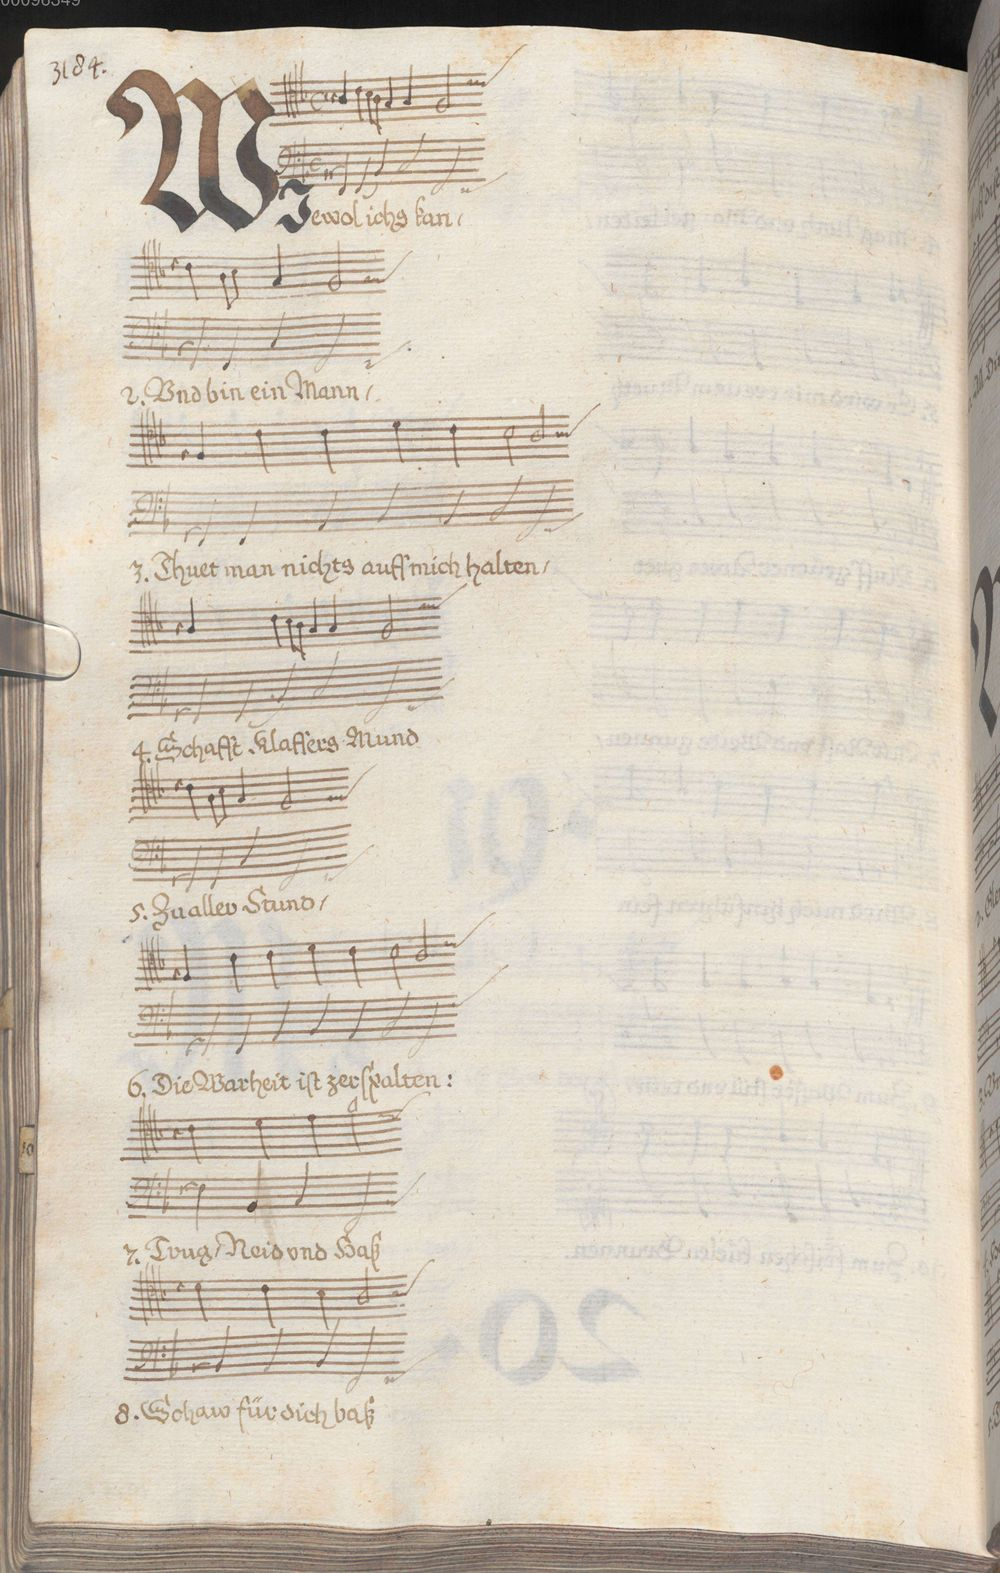 00098349
3184.
WIewol ichs kan/
2. Vnd bin ein Mann/
3. Thuet man nichts auff mich halten/
4. Schafft Klaffers Mund
5. Zu aller Stund/
6. Die Warheit ist zerspalten:
7. Trug/ Neid vnd Haß
8. Schaw für dich baß